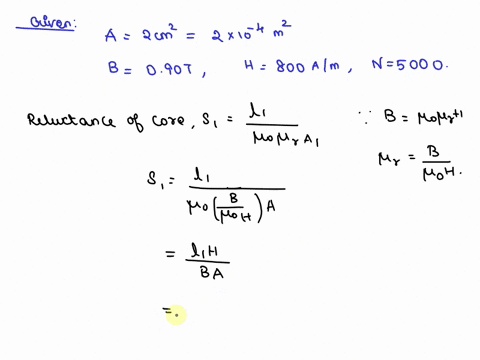 Given:
A = 2cm² = 2×10⁻⁴ m²
B = 0.90T, H = 800 A/m, N = 5000.
Reluctance of core, S₁ = l₁ / μ₀μᵣA₁ ∵ B = μ₀μᵣH
μᵣ = B / μ₀H.
S₁ = l₁ / μ₀(B / μ₀H)A
= l₁H / BA
=